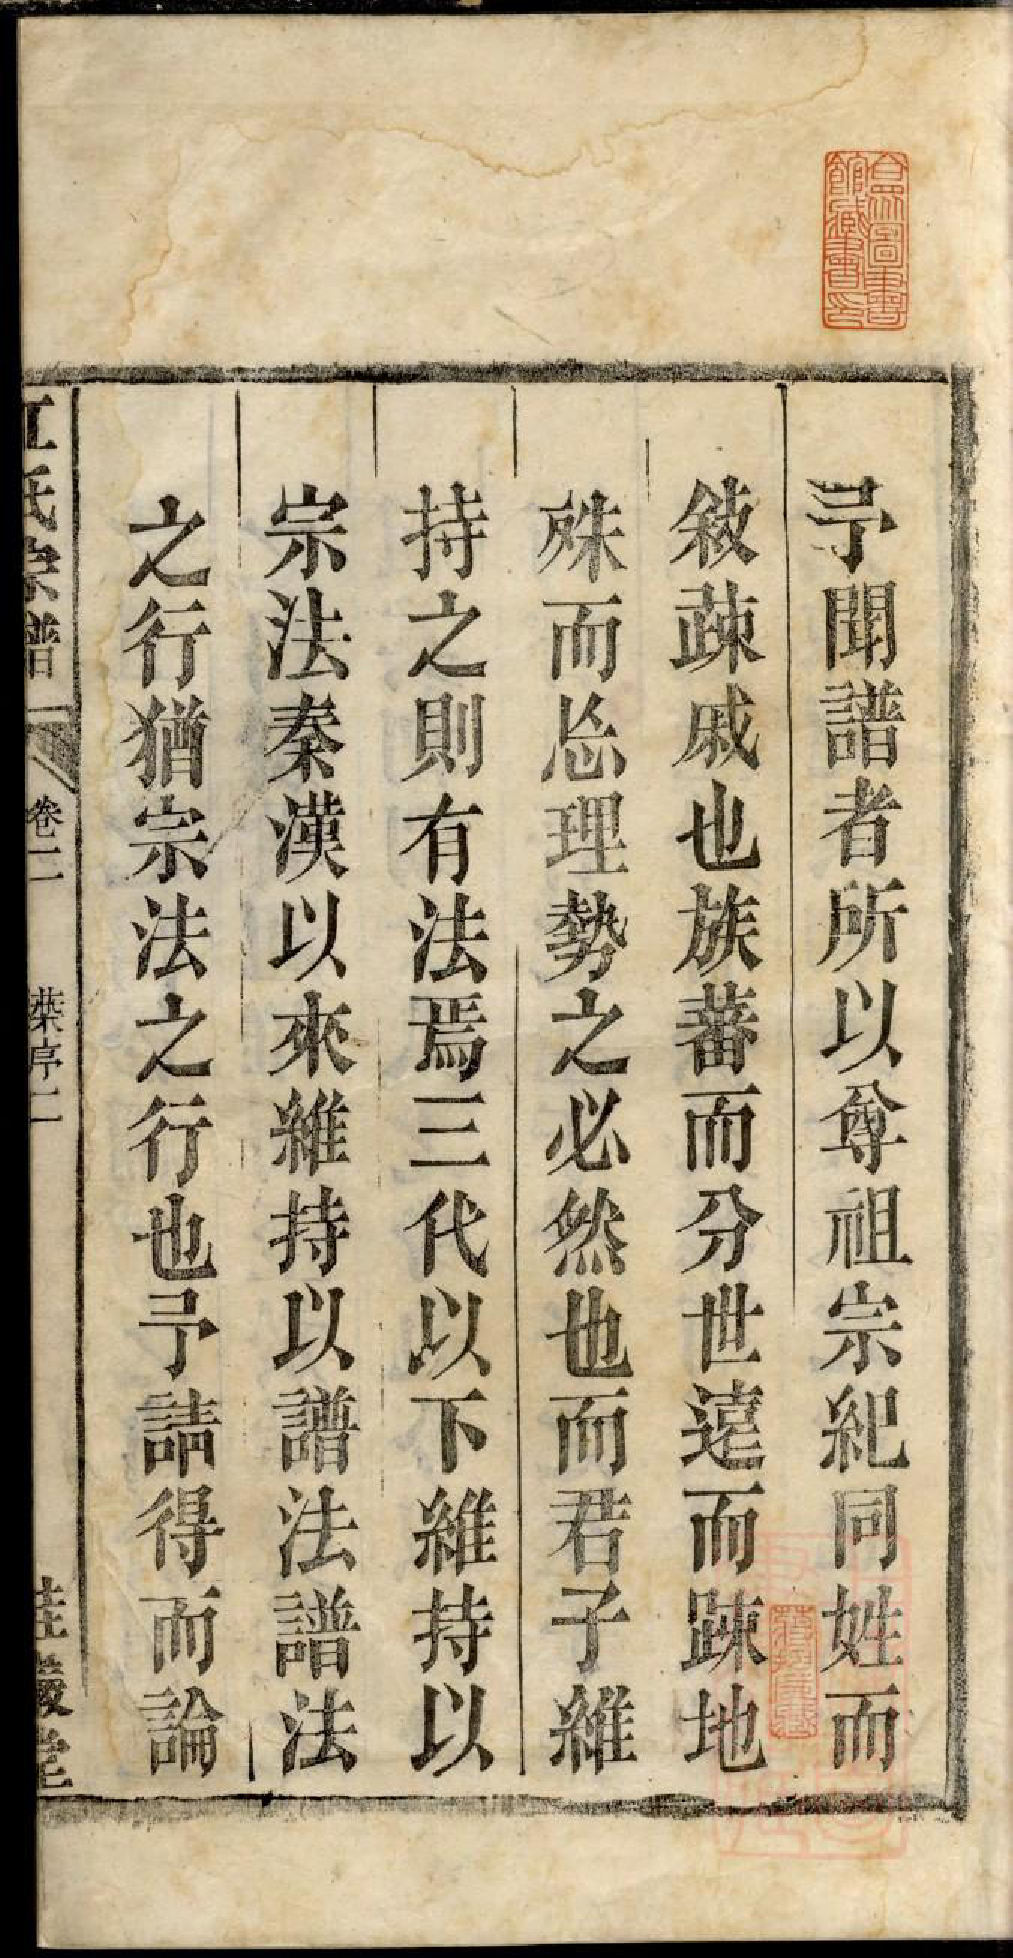 予聞譜者所以尊祖宗紀同姓而
敘疎戚也族蕃而分世遠而踈地
殊而忘理勢之必然也而君子維
持之則有法焉三代以下維持以
宗法秦漢以來維持以譜法譜法
之行猶宗法之行也予請得而論
江氏宗譜
卷二
桂巖堂